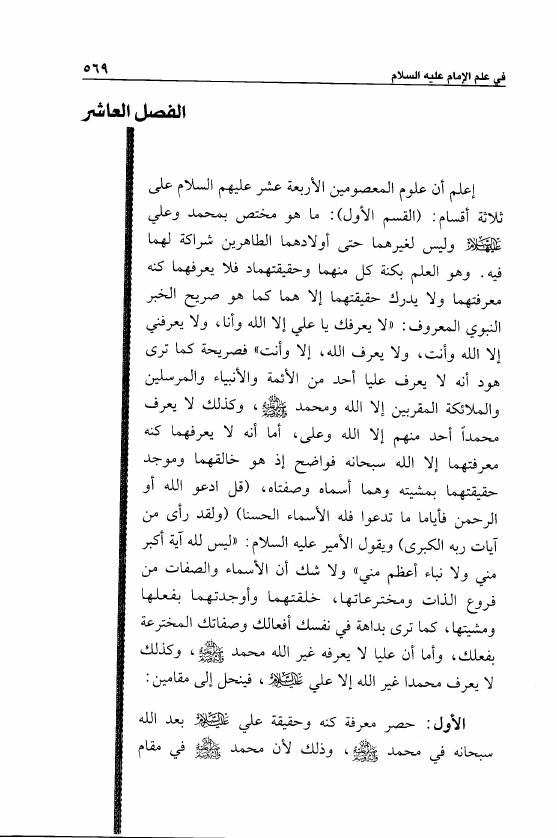 في علم الإمام عليه السلام ٥٦٩
الفصل العاشر
إعلم أن علوم المعصومين الأربعة عشر عليهم السلام على
ثلاثة أقسام: (القسم الأول): ما هو مختص بمحمد وعلي
عليهما السلام وليس لغيرهما حتى أولادهما الطاهرين شراكة لهما
فيه. وهو العلم بكنة كل منهما وحقيقتهماد فلا يعرفهما كنه
معرفتهما ولا يدرك حقيقتهما إلا هما كما هو صريح الخبر
النبوي المعروف: «لا يعرفك يا علي إلا الله وأنا، ولا يعرفني
إلا الله وأنت، ولا يعرف الله، إلا وأنت» فصريحة كما ترى
هود أنه لا يعرف عليا أحد من الأئمة والأنبياء والمرسلين
والملائكة المقربين إلا الله ومحمد ﷺ، وكذلك لا يعرف
محمداً أحد منهم إلا الله وعلى، أما أنه لا يعرفهما كنه
معرفتهما إلا الله سبحانه فواضح إذ هو خالقهما وموجد
حقيقتهما بمشيته وهما أسماه وصفتاه، (قل ادعو الله أو
الرحمن فأياما ما تدعوا فله الأسماء الحسنا) (ولقد رأى من
آيات ربه الكبرى) ويقول الأمير عليه السلام: «ليس لله آية أكبر
مني ولا نباء أعظم مني» ولا شك أن الأسماء والصفات من
فروع الذات ومخترعاتها، خلقتهما وأوجدتهما بفعلها
ومشيتها، كما ترى بداهة في نفسك أفعالك وصفاتك المخترعة
بفعلك، وأما أن عليا لا يعرفه غير الله محمد ﷺ، وكذلك
لا يعرف محمدا غير الله إلا علي عليه السلام، فينحل إلى مقامين:
الأول: حصر معرفة كنه وحقيقة علي عليه السلام بعد الله
سبحانه في محمد ﷺ، وذلك لأن محمد ﷺ في مقام